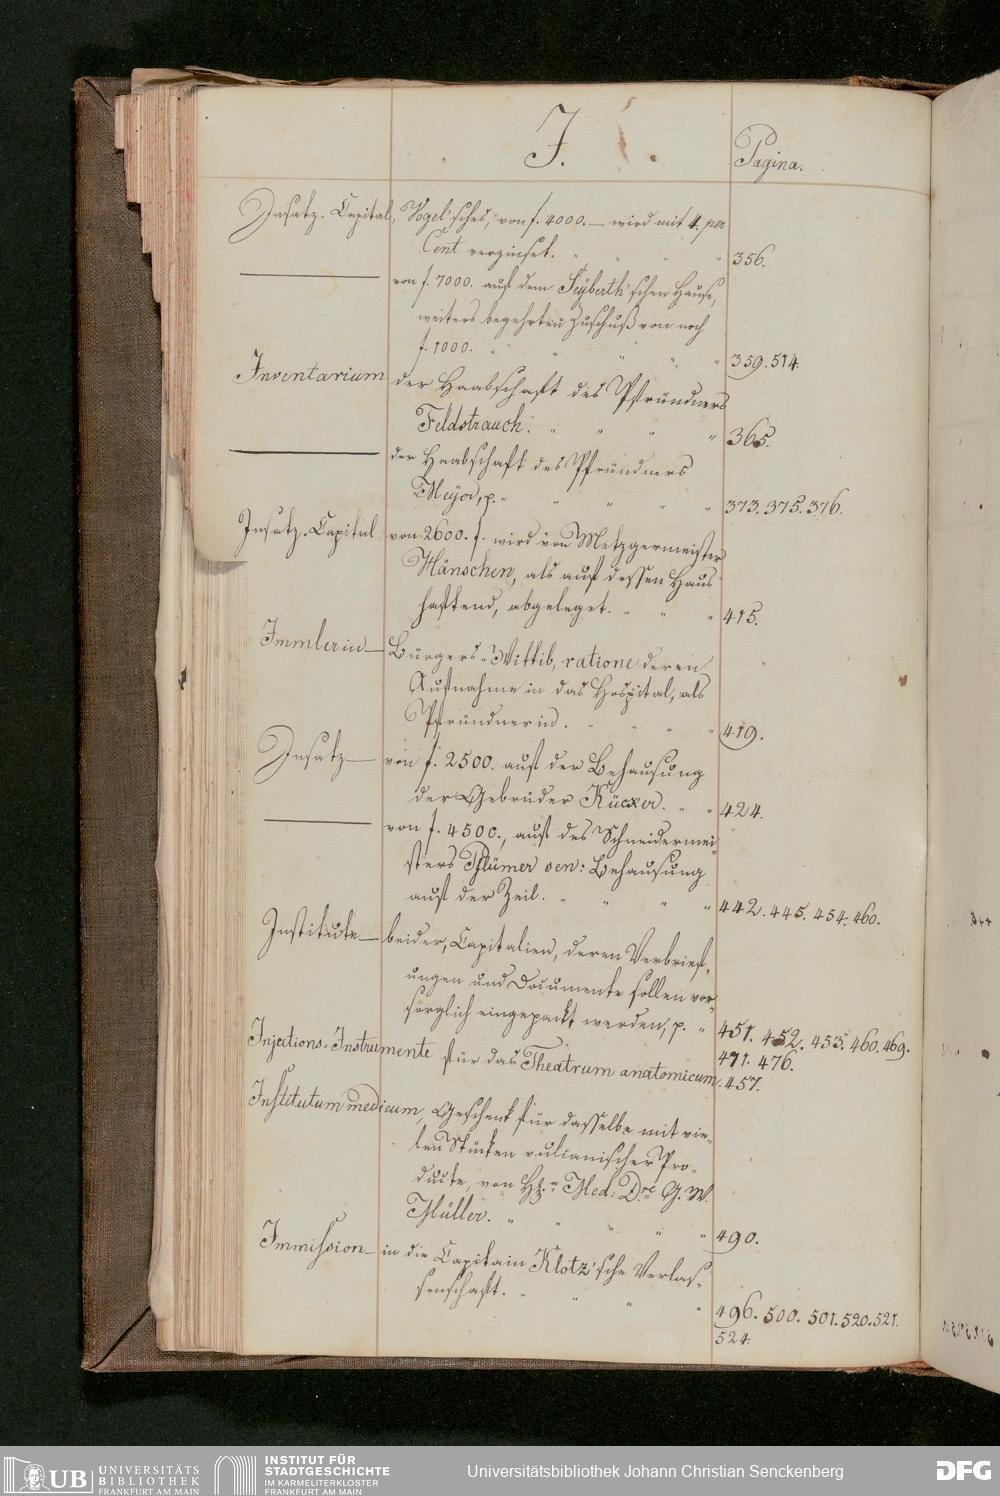 I.
Pagina.
Insatz-Capital, Vogel'sches, von f. 4000.— wird mit 4. per
Cent verzinset. 356.
von f. 7000. auf dem Seÿberth'schen Hause,
weiters begehrten Zuschuß von noch
f. 1000. 359. 514.
Inventarium der Haabschaft des Pfründners
Feldstrauch. 365.
der Haabschaft des Pfründners
Meÿer, p. 373. 375. 376.
Insatz-Capital von 2600. f. wird von Metzgermeister
Hänschen, als auf dessen Haus
haftend, abgeleget. 415.
Immlerin — Bürgers-Wittib, ratione deren
Aufnahme in das Hospital, als
Pfründnerin. 419.
Insatz — von f. 2500. auf der Behausung
der Gebrüder 424.
von f. 4500., auf des Schneidermei-
sters Pflümer sen: Behausung
auf der Zeil. 442. 445. 454. 460.
Institute — beider, Capitalien, deren Verbrief-
ungen und Documente sollen vor-
sorglich eingepackt werden, p. 451. 452. 453. 460. 469.
471. 476.
Injections-Instrumente für das Theatrum anatomicum. 457.
Institutum medicum, Geschenk für dasselbe mit vie-
len Stücken vulcanischer Pro-
ducte, von H. Med: Dre G. W.
Müller. 490.
Immission — in die Capitain Klotz'sche Verlas-
senschaft. 496. 500. 501. 520. 521.
524.
UB UNIVERSITÄTS
BIBLIOTHEK
FRANKFURT AM MAIN
INSTITUT FÜR
STADTGESCHICHTE
IM KARMELITERKLOSTER
FRANKFURT AM MAIN
Universitätsbibliothek Johann Christian Senckenberg
DFG